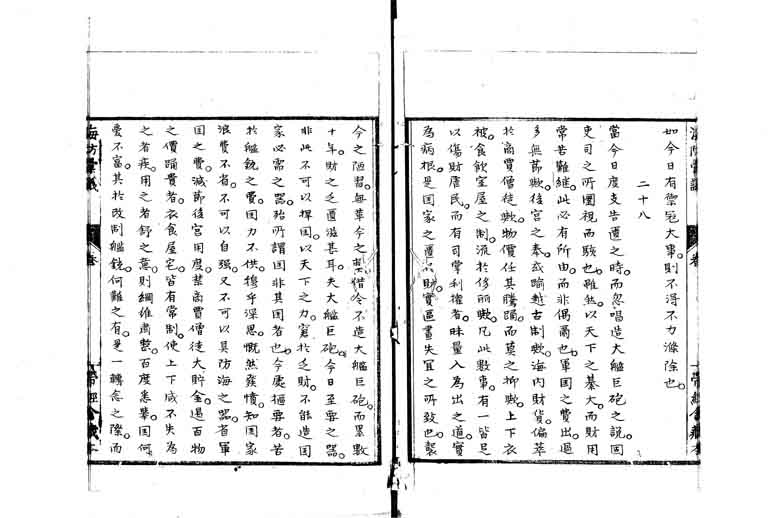 如今日有禦寇大事。則不得不力滌除也。
二十八
當今日度支告匱之時。而忽唱造大艦巨砲之說。固
吏司之所團視而駭也。雖然。以天下之綦大。而財用
常苦難繼。此必有所由。而非偶爾也。軍国之費。出過
多無節歟。後宮之奉。或踰越古制歟。海内財貨。偏萃
於商賈僧徒歟。物價任其騰踊。而莫之抑歟。上下衣
被。食飲室屋之制。流於侈麗歟。凡此數事。有一皆足
以傷財虐民。而有司常利權者。昧量入為出之道。實
為病根。是国家之匱以財實區畫失宜之所致也。襲
今之陋習。無革今之 借令不造大艦巨砲。而累數
十年。財之乏匱滋甚耳。夫大艦巨砲。今日至要之器。
非此不可以捍国。以天下之力。窘於乏財。不能造国
家必需之器。殆所謂国非其国者也。今處樞要者。苦
於艦銃之費。国力不供。獲乎深思。慨然發憤。知国家
浪費不省。不可以自强。又不可以具防海之器。省軍
国之費。減節後宮用度。禁商賈僧徒大貯金。遏百物
之價踊貴者。衣食屋宅。皆有常制。使上下咸不失為
之者疾。用之者舒之意。則綱維肅整。百度悉擧。国何
憂不富。其於改制艦銃。何難之有。是一轉念之際。而
海防彙議
卷